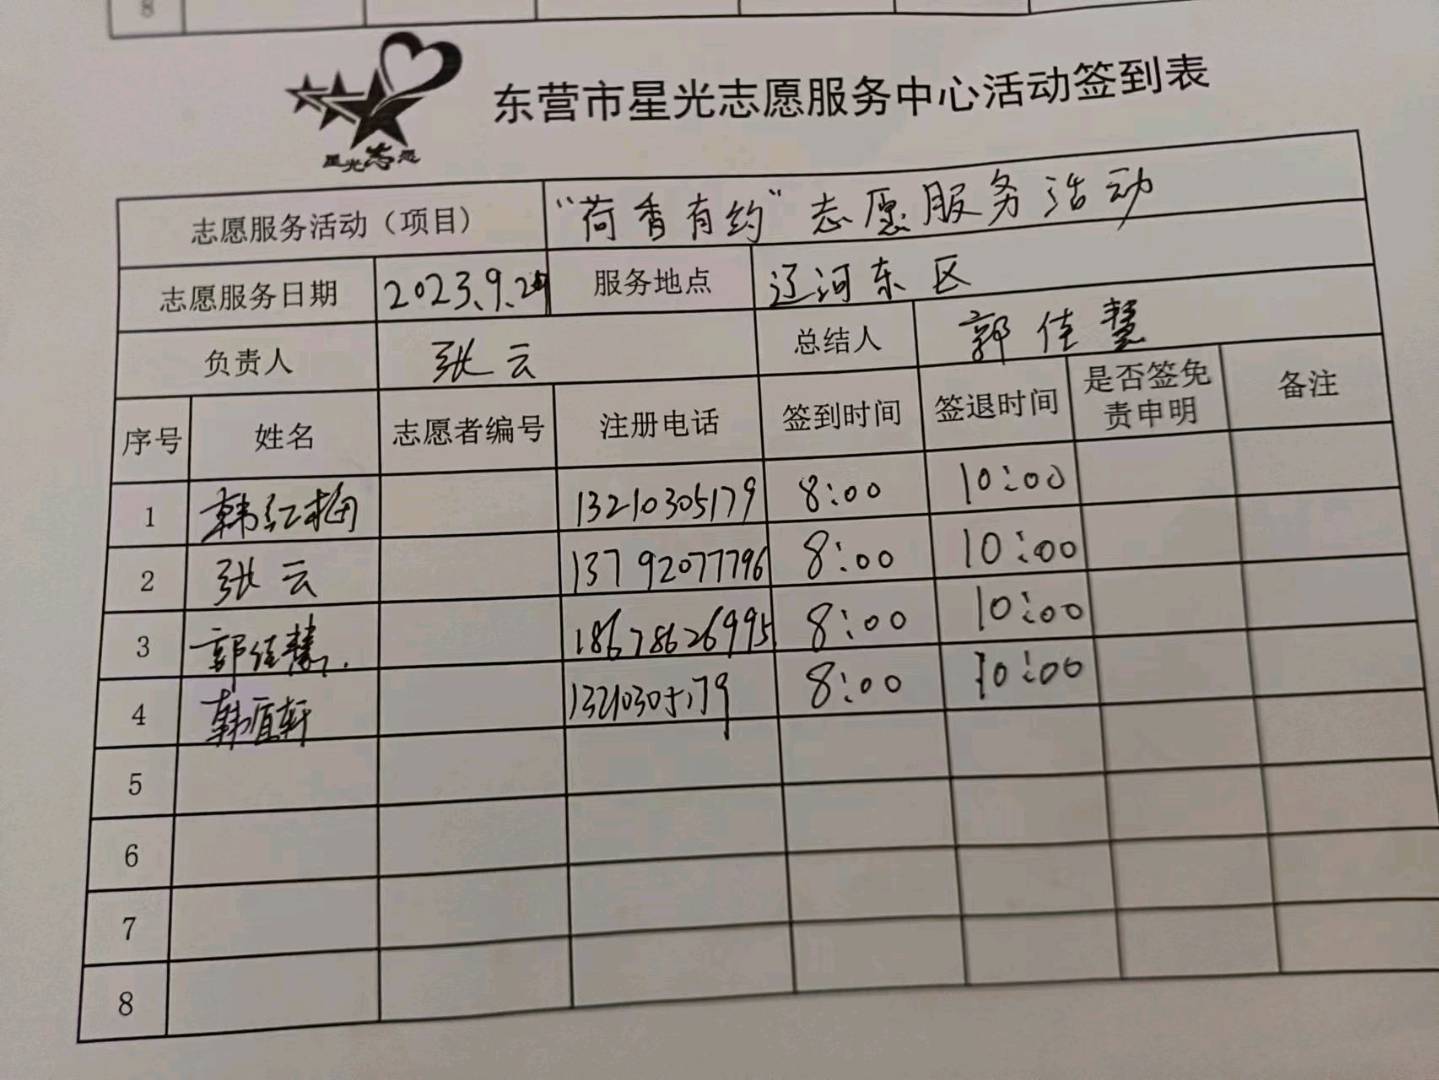 8
星光志愿
东营市星光志愿服务中心活动签到表
志愿服务活动（项目） “荷香有约”志愿服务活动
志愿服务日期 2023.9. 服务地点 辽河东区
负责人 张云 总结人 郭佳慧
序号 姓名 志愿者编号 注册电话 签到时间 签退时间 是否签免责申明 备注
1 韩红梅 13210305179 8:00 10:00
2 张云 13792077796 8:00 10:00
3 郭佳慧 18678626995 8:00 10:00
4 韩宜轩 13210305179 8:00 10:00
5
6
7
8